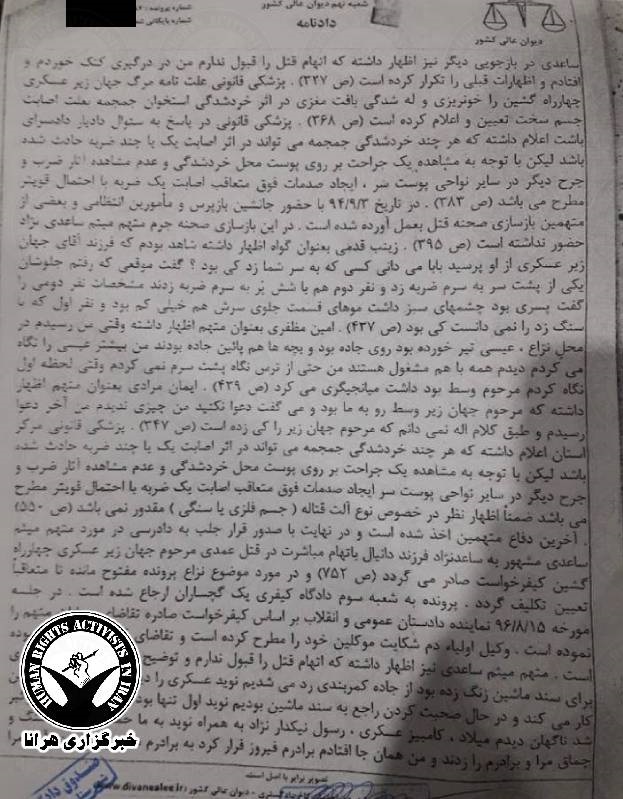 شعبه نهم دیوان عالی کشور
شماره پرونده :
شماره بایگانی
دادنامه
دیوان عالی کشور
ساعدی در بازجویی دیگر نیز اظهار داشته که اتهام قتل را قبول ندارم من در درگیری کتک خوردم و
افتادم و اظهارات قبلی را تکرار کرده است (ص ۳۲۷) . پزشکی قانونی علت تامه مرگ جهان زیر عسکری
چهارراه گشین را خونریزی و له شدگی بافت مغزی در اثر خردشدگی استخوان جمجمه بعلت اصابت
جسم سخت تعیین و اعلام کرده است (ص ۳۶۸) . پزشکی قانونی در پاسخ به سئوال دادیار دادسرای
باشت اعلام داشته که هر چند خردشدگی جمجمه می تواند در اثر اصابت یک یا چند ضربه حادث شده
باشد لیکن با توجه به مشاهده یک جراحت بر روی پوست محل خردشدگی و عدم مشاهده آثار ضرب و
جرح دیگر در سایر نواحی پوست سر ، ایجاد صدمات فوق متعاقب اصابت یک ضربه با احتمال قویتر
مطرح می باشد (ص ۳۸۳) . در تاریخ ۹۴/۹/۳ با حضور جانشین بازپرس و مأمورین انتظامی و بعضی از
متهمین بازسازی صحنه قتل بعمل آورده شده است . در این بازسازی صحنه جرم متهم میثم ساعدی نژاد
حضور نداشته است (ص ۳۹۵) . زینب قدمی بعنوان گواه اظهار داشته شاهد بودم که فرزند آقای جهان
زیر عسکری از او پرسید بابا می دانی کسی که به سر شما زد کی بود ؟ گفت موقعی که رفتم جلوشان
یکی از پشت سر به سرم ضربه زد و نفر دوم هم با شش پَر به سرم ضربه زدند مشخصات نفر دومی را
گفت پسری بود چشمهای سبز داشت موهای قسمت جلوی سرش هم خیلی کم بود و نفر اول که با
سنگ زد را نمی دانست کی بود (ص ۴۳۷) . امین مظفری بعنوان متهم اظهار داشته وقتی من رسیدم در
محل نزاع ، عیسی تیر خورده بود روی جاده بود و بچه ها هم پائین جاده بودند من بیشتر عیسی را نگاه
می کردم دیدم همه با هم مشغول هستند من حتی از ترس نگاه پشت سرم نمی کردم وقتی لحظه اول
نگاه کردم مرحوم وسط بود داشت میانجیگری می کرد (ص ۴۳۹) . ایمان مرادی بعنوان متهم اظهار
داشته که مرحوم جهان زیر وسط رو به ما بود و می گفت دعوا نکنید من چیزی ندیدم من آخر دعوا
رسیدم و طبق کلام اله نمی دانم که مرحوم جهان زیر را کی زده است (ص ۳۴۷) . پزشکی قانونی مرکز
استان اعلام داشته که هر چند خردشدگی جمجمه می تواند در اثر اصابت یک یا چند ضربه حادث شده
باشد لیکن با توجه به مشاهده یک جراحت بر روی پوست محل خردشدگی و عدم مشاهده آثار ضرب و
جرح دیگر در سایر نواحی پوست سر ایجاد صدمات فوق متعاقب اصابت یک ضربه با احتمال قویتر مطرح
می باشد ضمناً اظهار نظر در خصوص نوع آلت قتاله ( جسم فلزی یا سنگی ) مقدور نمی باشد (ص ۵۵۰)
. آخرین دفاع متهمین اخذ شده است و در نهایت با صدور قرار جلب به دادرسی در مورد متهم میثم
ساعدی مشهور به ساعدنژاد فرزند دانیال باتهام مباشرت در قتل عمدی مرحوم جهان زیر عسکری چهارراه
گشین کیفرخواست صادر می گردد (ص ۷۵۲) و در مورد موضوع نزاع پرونده مفتوح مانده تا متعاقباً
تعیین تکلیف گردد . پرونده به شعبه سوم دادگاه کیفری یک گچساران ارجاع شده است . در جلسه
مورخه ۹۶/۸/۱۵ نماینده دادستان عمومی و انقلاب بر اساس کیفرخواست صادره تقاضای متهم را
نموده است . وکیل اولیاء دم شکایت موکلین خود را مطرح کرده است و تقاضای
است . متهم میثم ساعدی نیز اظهار داشته که اتهام قتل را قبول ندارم و توضیح
برای سند ماشین زنگ زده بود از جاده کمربندی رد می شدیم نوید عسکری را د
کار می کند و در حال صحبت کردن راجع به سند ماشین بودیم نوید اول تنها بود
شد ناگهان دیدم میلاد ، کامبیز عسکری ، رسول نیکدار نژاد به همراه نوید به ما
چماق مرا و برادرم را زدند و من همان جا افتادم برادرم فیروز فرار کرد به برادرم
تصویر برابر با اصل است.
دیوان عالی کشور (www.divanealee.ir
HUMAN RIGHTS ACTIVISTS IN IRAN
خبرگزاری هرانا